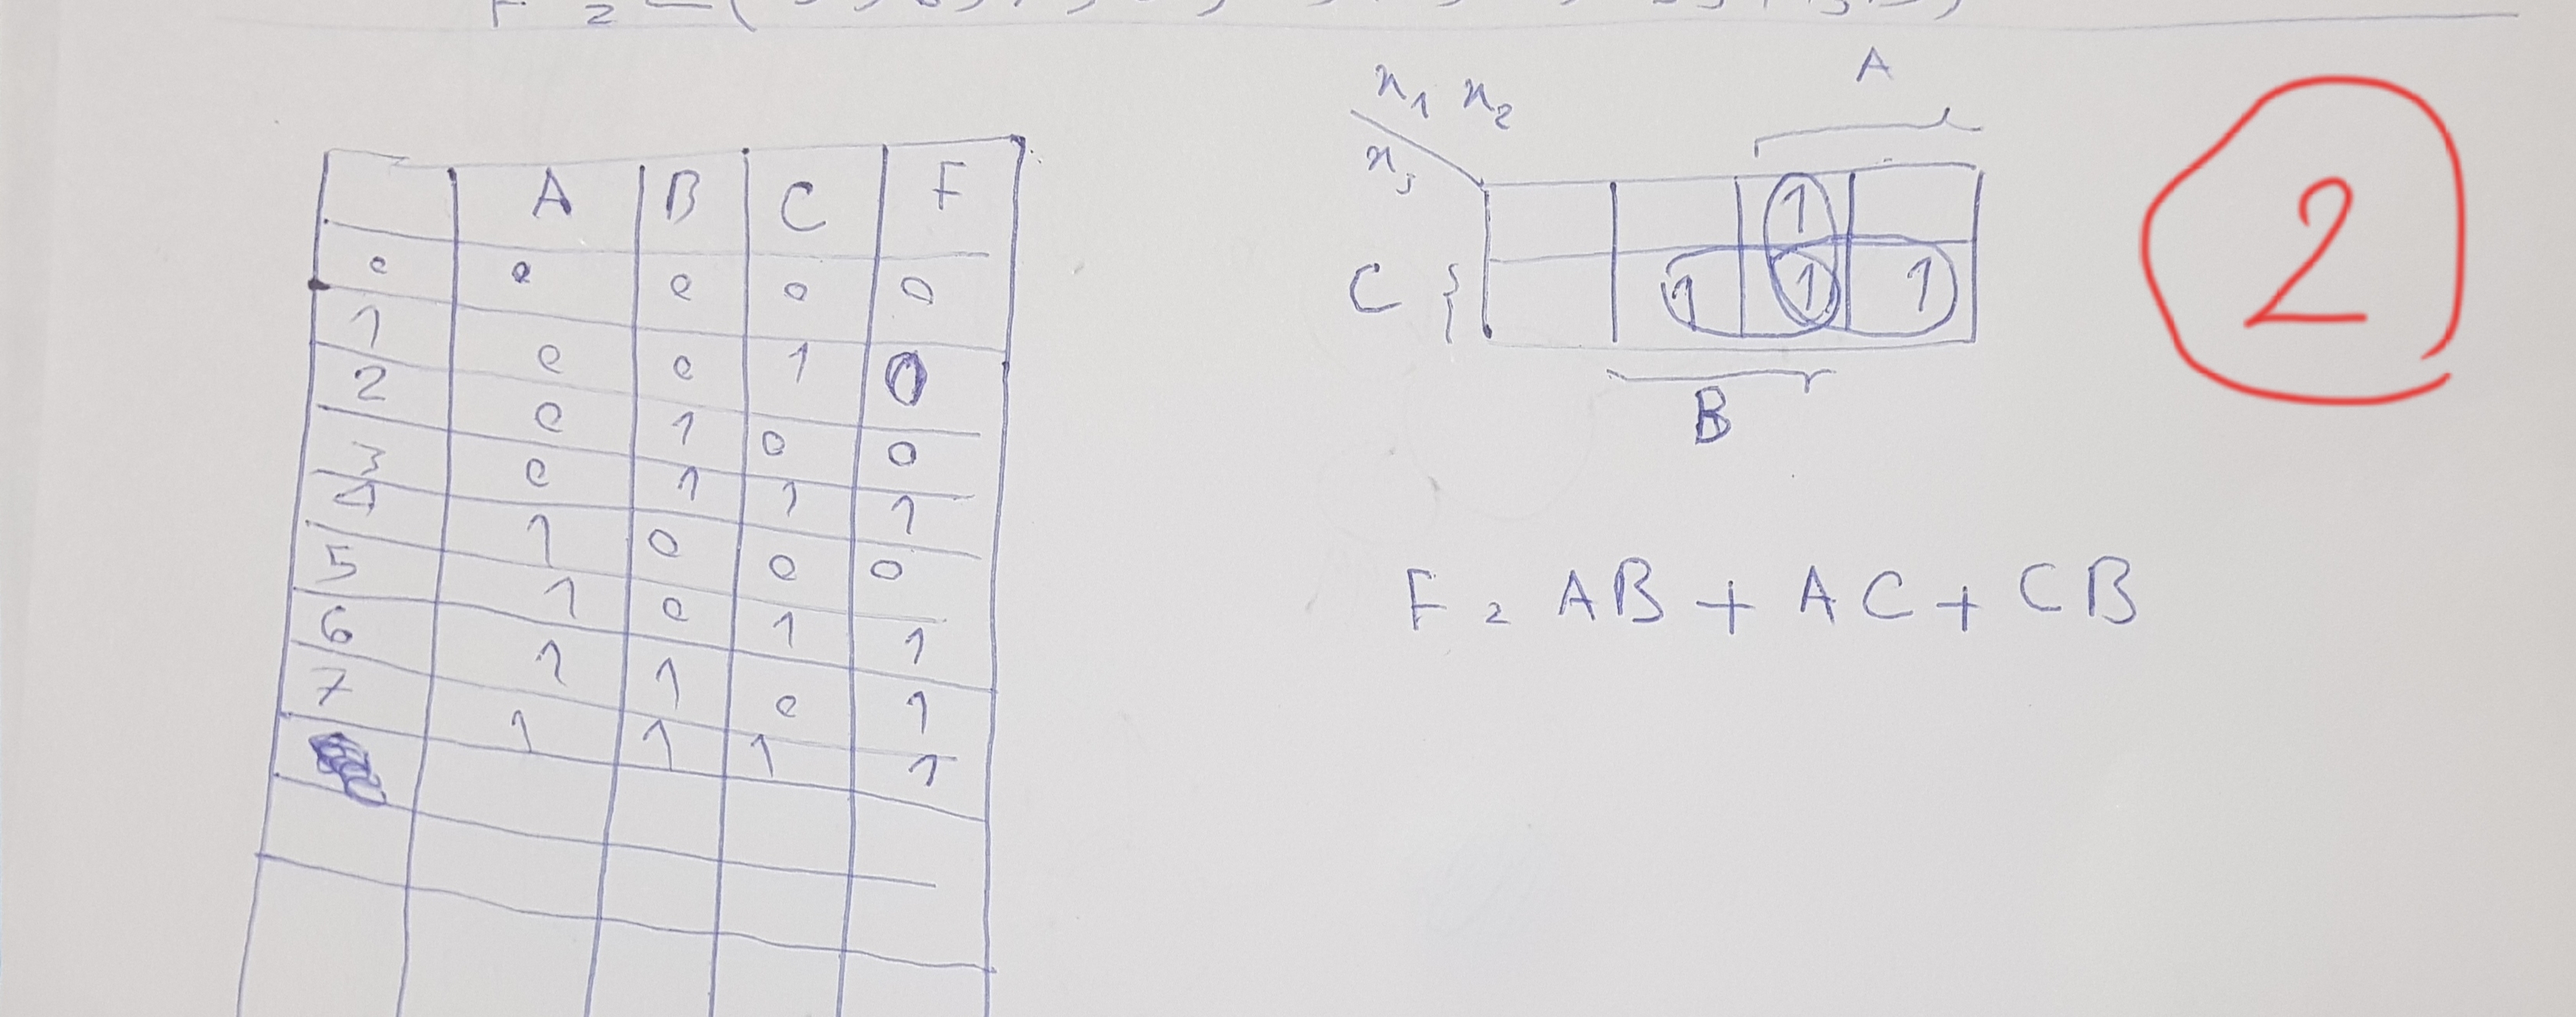 A B C F
0 0 0 0 0
1 0 0 1 0
2 0 1 0 0
3 0 1 1 1
4 1 0 0 0
5 1 0 1 1
6 1 1 0 1
7 1 1 1 1
A
x₁ x₂
x₃
1
C { 1 1 1
B
F = AB + AC + CB
2